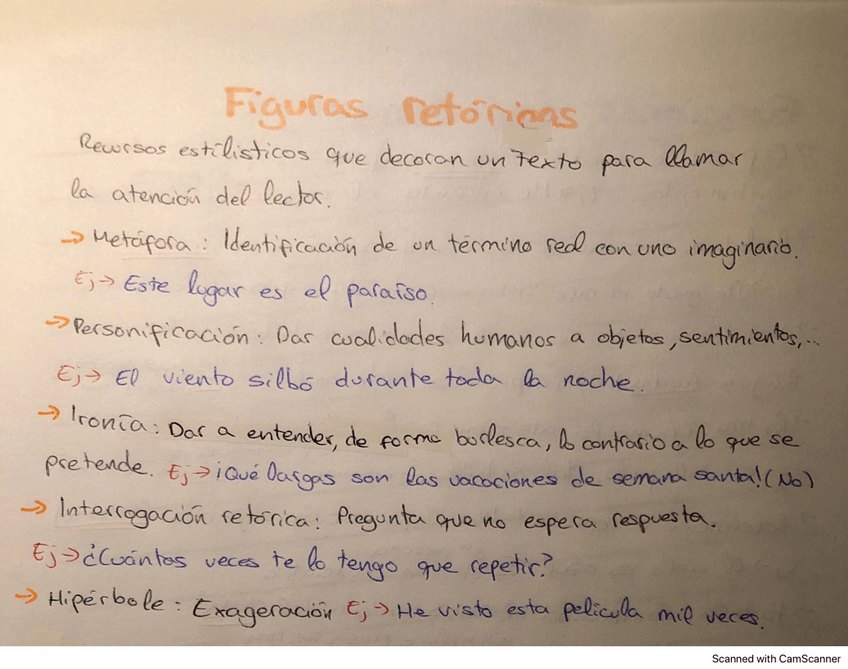 Figuras retóricas
Recursos estilísticos que decoran un texto para llamar
la atención del lector.
→ Metáfora: Identificación de un término real con uno imaginario.
Ej→ Este lugar es el paraíso.
→ Personificación: Dar cualidades humanos a objetos, sentimientos,...
Ej→ El viento silbó durante toda la noche.
→ Ironía: Dar a entender, de forma burlesca, lo contrario a lo que se
pretende. Ej→ ¡Qué largas son las vacaciones de semana santa! (No)
→ Interrogación retórica: Pregunta que no espera respuesta.
Ej→ ¿Cuántos veces te lo tengo que repetir?
→ Hipérbole: Exageración Ej→ He visto esta película mil veces.
Scanned with CamScanner